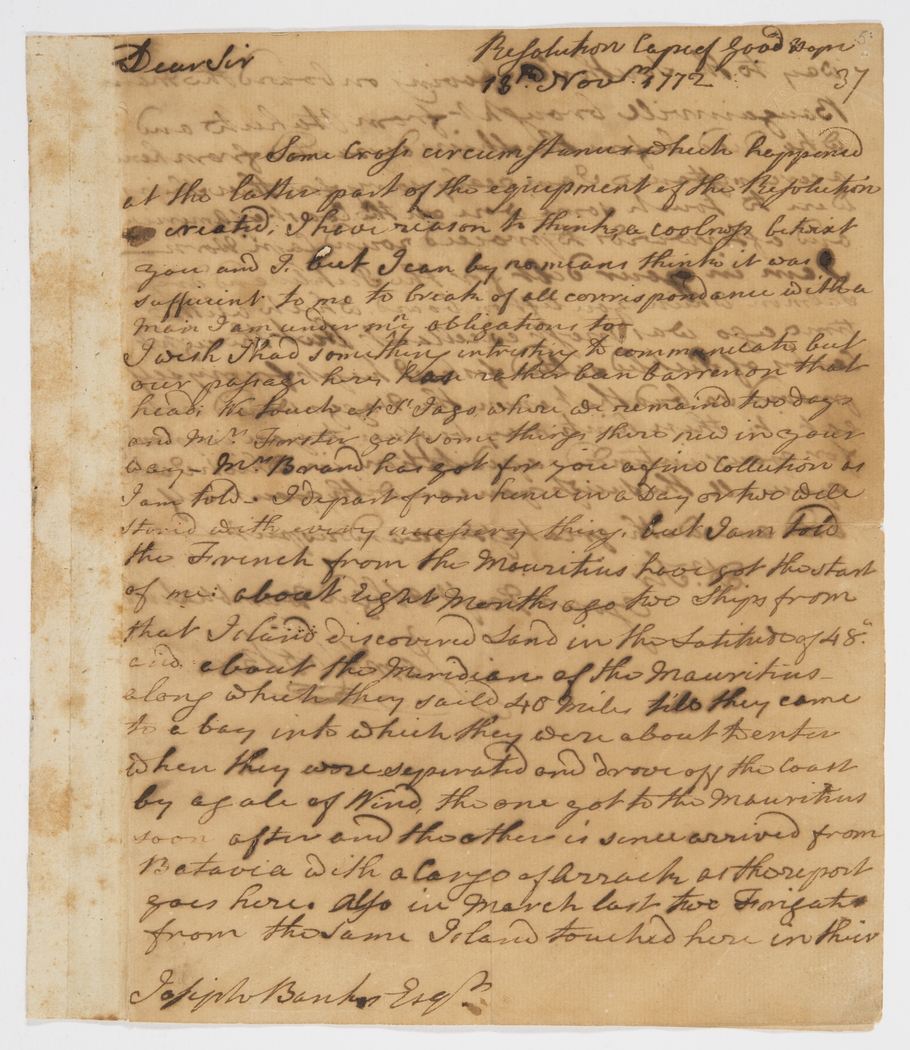 Dear Sir
Resolution Cape of Good Hope
18th Novr. 1772
37
Some Cross circumstances which happened
at the latter part of the equipment of the Resolution
created, I have reason to think, a coolness betwixt
you and I. but I can by no means think it was
sufficient to me to break of all corrispondance with a
Man I am under my obligations too
I wish I had something intresting to communicate but
our passage here has rather ban barren on that
head; We touch at St Jago where we remain'd two days
and Mr. Forster got some things there new in your
way. Mr. Brand has got for you a fine Collection as
I am told. I depart from hence in a Day or two well
stored with every necessary thing. but I am told
the French from the Mauritius have got the start
of me: about Eight Months ago two Ships from
that Island discovered Land in the Latitude of 48°
and about the Meridian of the Mauritius
along which they saild 40 Miles till they came
to a bay into which they were about to enter
when they were seperated and drove off the Coast
by a gale of Wind, the one got to the Mauritius
soon after and the other is since arrived from
Batavia with a Cargo of Arrack as the report
goes here. Also in March last two Frigates
from the Same Island touched here in thier
Joseph Banks Esqr.